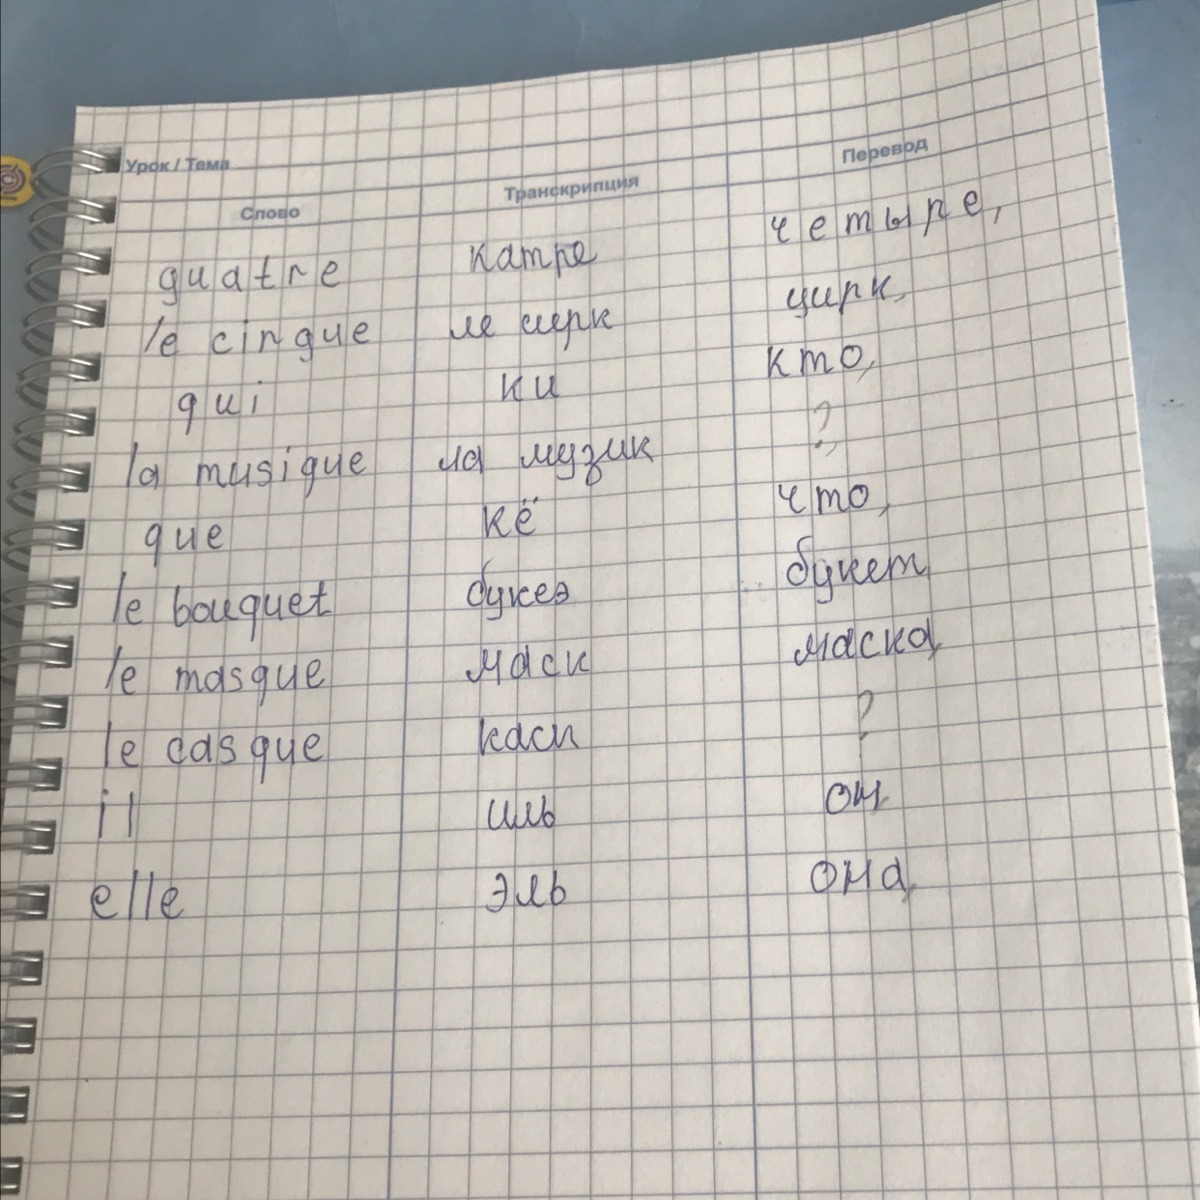 Урок / Тема
Слово Транскрипция Перевод
quatre катре четыре,
le cinque ле сирк цирк,
qui ки кто,
la musique ла музик ?,
que кё что,
le bouquet букеэ букет
le masque маск маска,
le casque каск ?
il иль он
elle эль она,